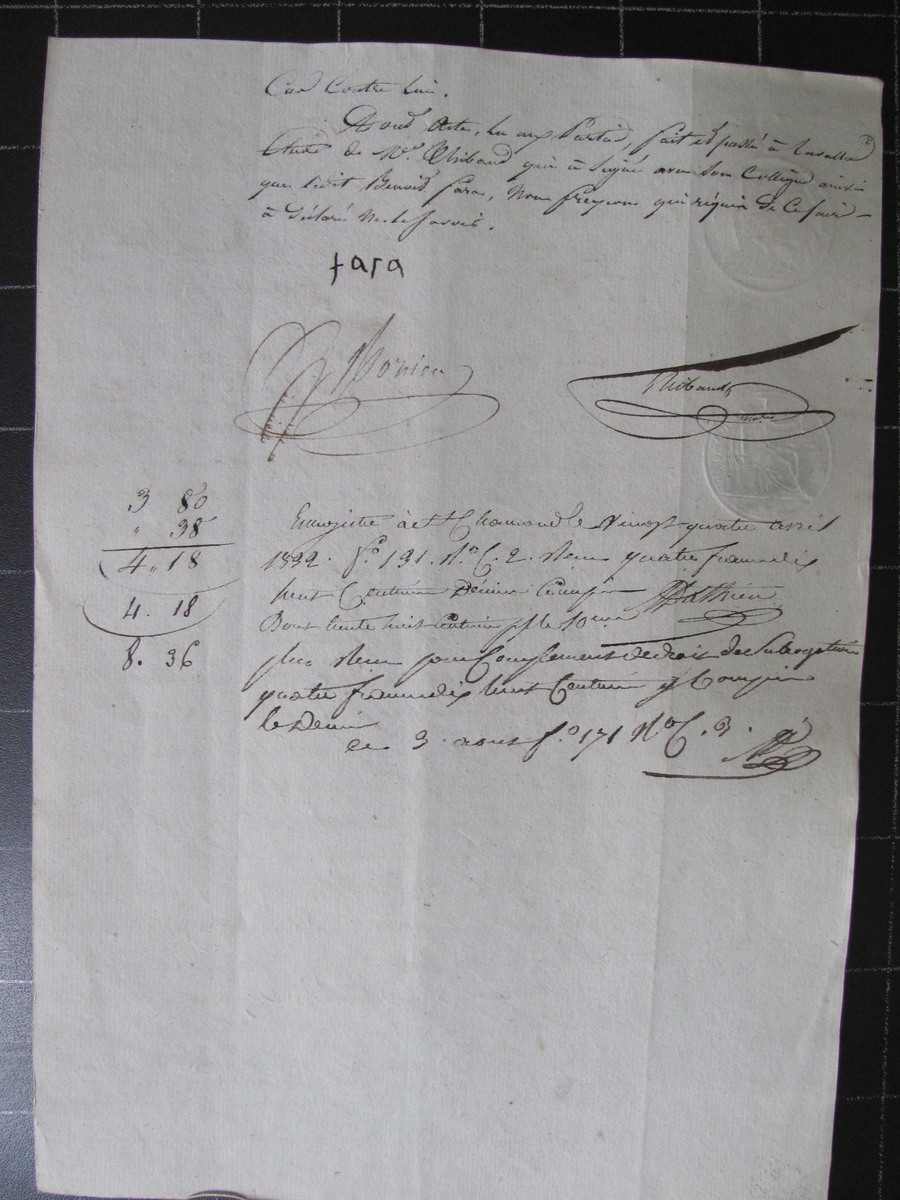 Cas Contre lui.
Dont Acte, lu aux Parties, fait et passé à Lavalla
Etude de Me. Thibaud qui à signé avec son Collègue ainsi
que ledit Benoit fara, Non freycon qui réquis de Ce faire
à déclaré ne le savoir.
fara
Thibaud
3 80
" 38
4. 18
4. 18
8. 36
Enregistré à St Chamond le vingt quatre avril
1822. fo. 191. Ro. C. 2. Reçu quatre francs dix
huit Centimes Décime Compris Mathieu
Dont trente huit centimes pr le 10me
plus Reçu pour Complément de droit de Subrogation
quatre francs dix huit Centimes y Compris
le Décime
ce 3 aout fo. 171 Ro C. 3.